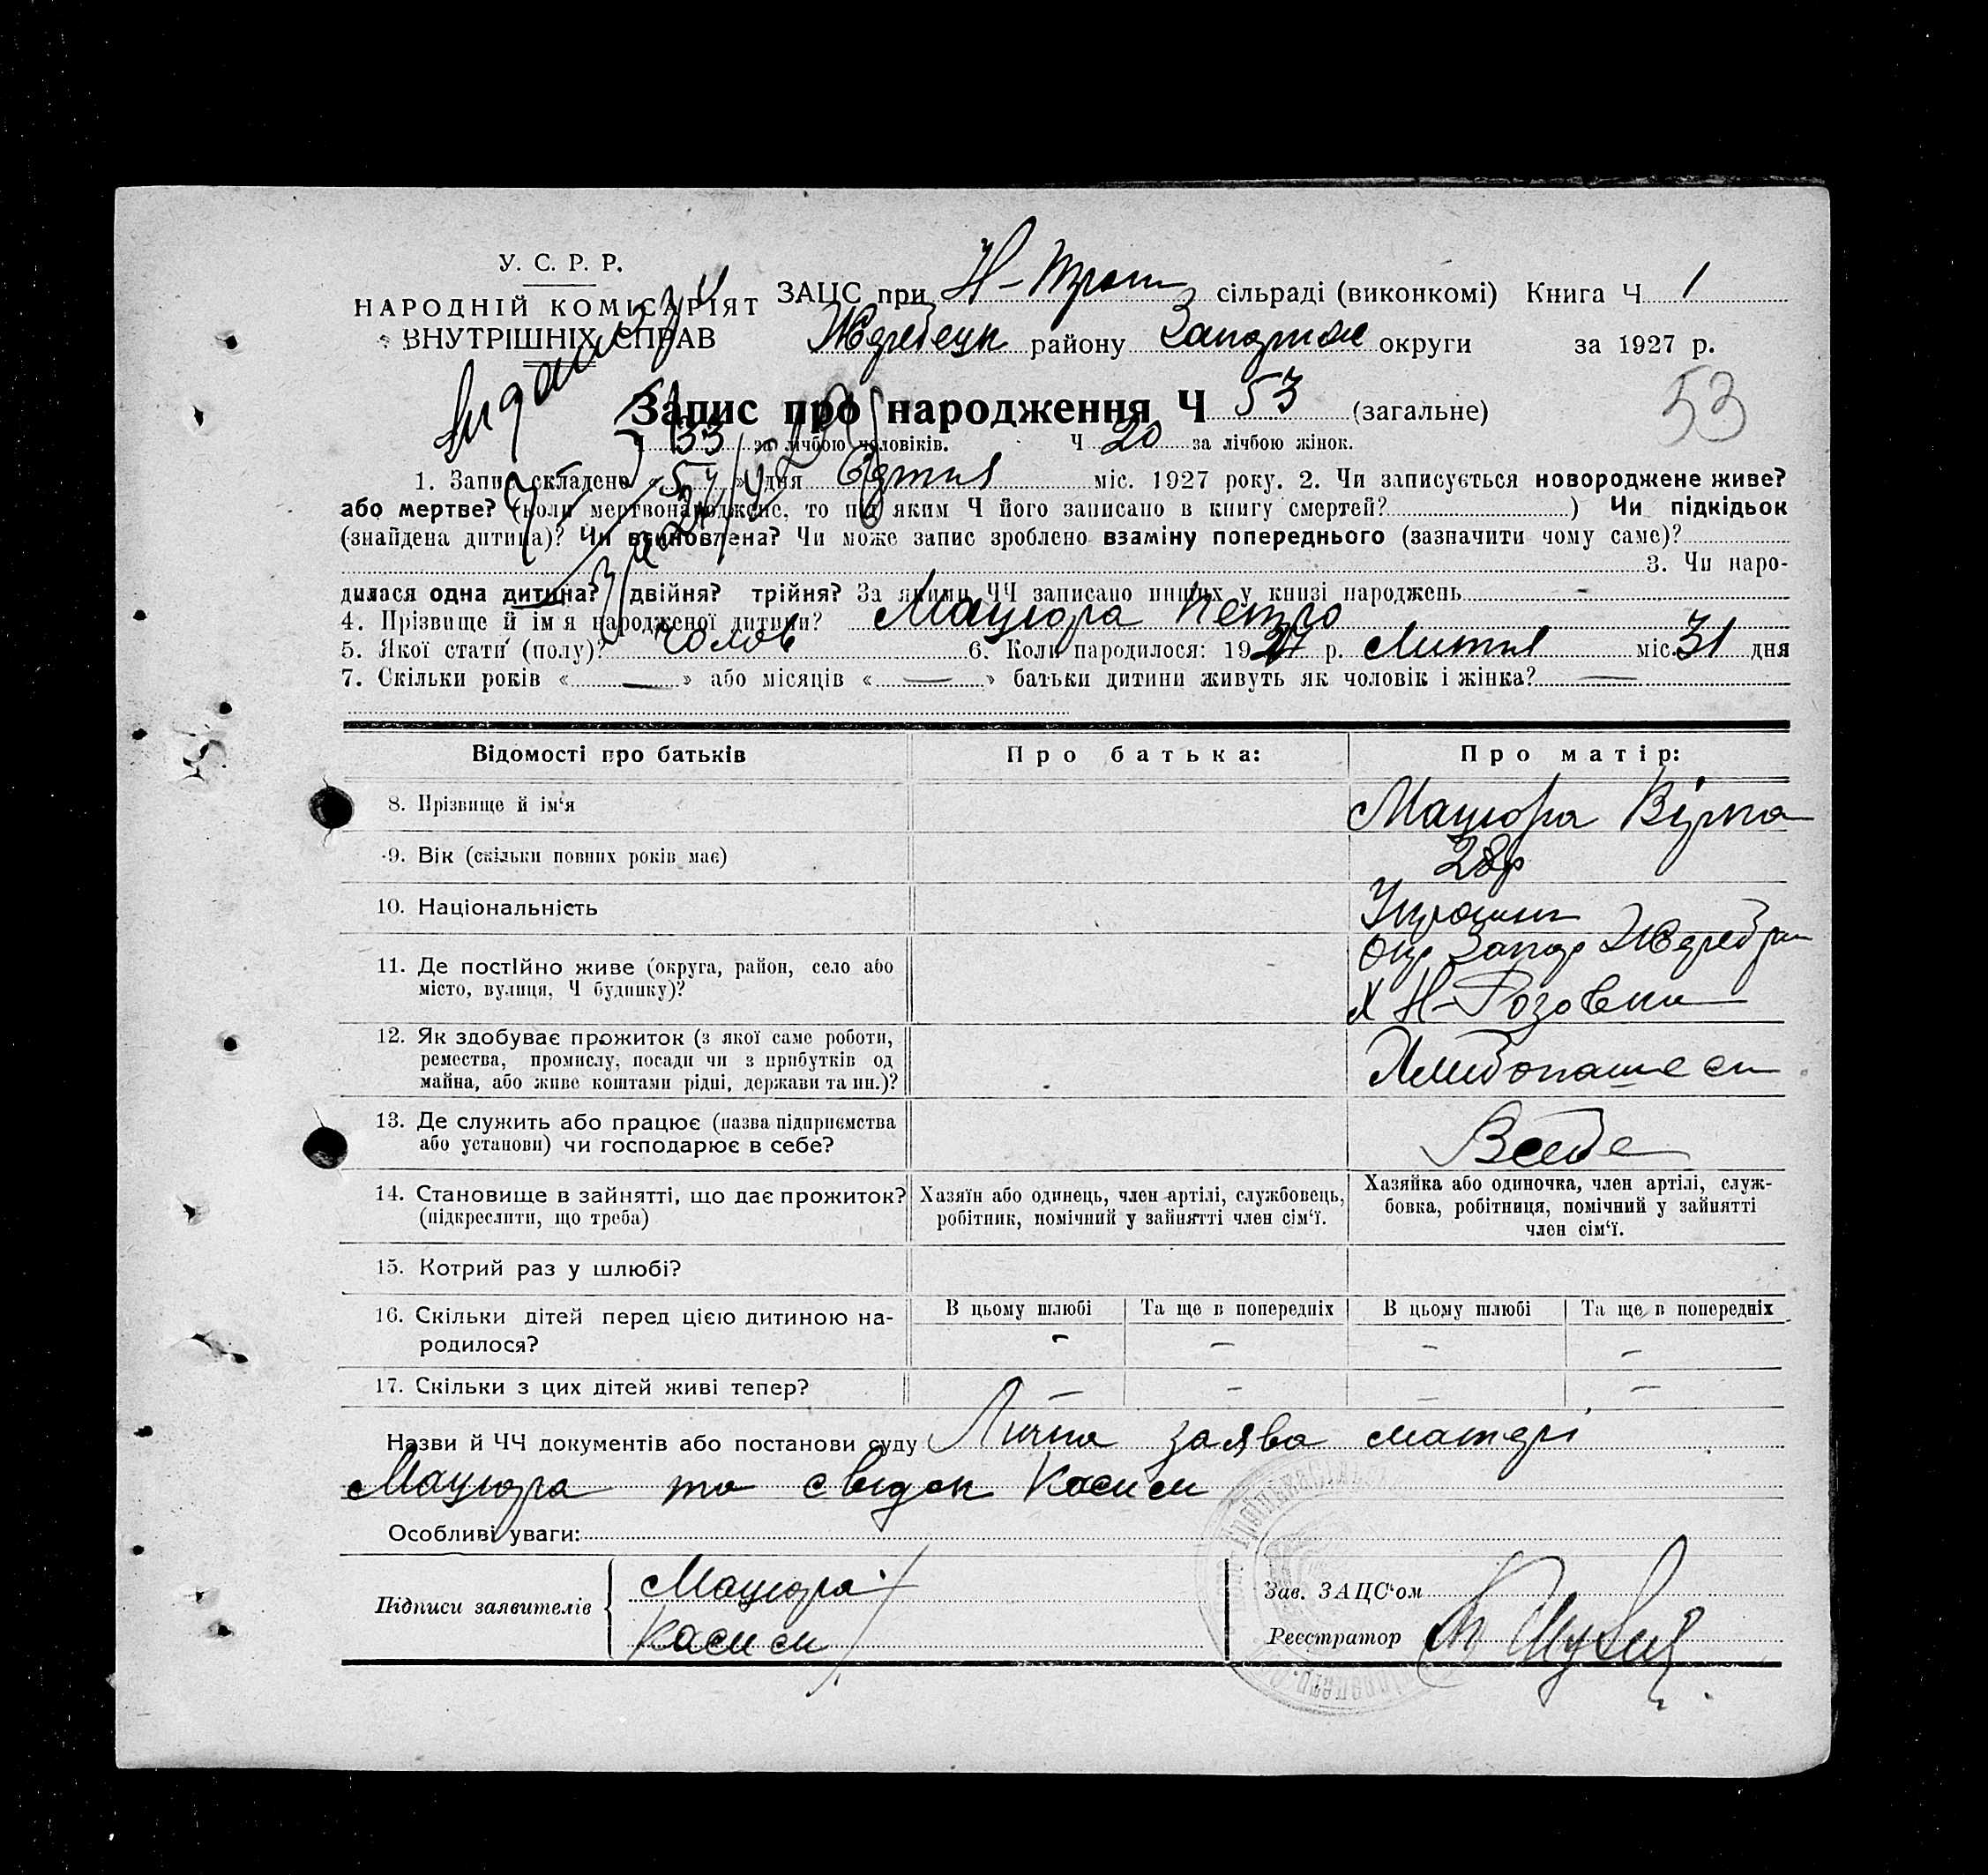 У. С. Р. Р.
НАРОДНІЙ КОМІСАРІЯТ
ВНУТРІШНІХ СПРАВ
ЗАЦС при Н- сільраді (виконкомі) Книга Ч 1
Жеребецьк району Запоріж округи за 1927 р.
Запис про народження Ч 53 (загальне)
53
Ч 33 за лічбою чоловіків. Ч 20 за лічбою жінок.
1. Запис складено « » дня міс. 1927 року. 2. Чи записується новороджене живе?
або мертве? (коли мертвонароджене, то під яким Ч його записано в книгу смертей? ) Чи підкідьок
(знайдена дитина)? Чи всиновлена? Чи може запис зроблено взаміну попереднього (зазначити чому саме)?
3. Чи наро-
дилася одна дитина? двійня? трійня? За якими ЧЧ записано инших у книзі народжень -
4. Прізвище й ім'я народженої дитини? Мацюра Петро
5. Якої статі (полу)? чолов 6. Коли народилося: 1927 р. Липня міс. 31 дня
7. Скільки років « — » або місяців « — » батьки дитини живуть як чоловік і жінка? —
Відомості про батьків Про батька: Про матір:
8. Прізвище й ім'я Мацюра Вірка
9. Вік (скільки повних років має) 28р
10. Національність Українк
11. Де постійно живе (округа, район, село або Окр Запор Жереб рай
місто, вулиця, Ч будинку)? Х Н-Розовка
12. Як здобуває прожиток (з якої саме роботи,
ремества, промислу, посади чи з прибутків од Хлибопашеси
майна, або живе коштами рідні, держави та ин.)?
13. Де служить або працює (назва підприємства
або установи) чи господарює в себе? Всебе
14. Становище в зайнятті, що дає прожиток? Хазяїн або одинець, член артілі, службовець, Хазяйка або одиночка, член артілі, служ-
(підкреслити, що треба) робітник, помічний у зайнятті член сім'ї. бовка, робітниця, помічний у зайнятті
член сім'ї.
15. Котрий раз у шлюбі?
16. Скільки дітей перед цією дитиною на- В цьому шлюбі Та ще в попередніх В цьому шлюбі Та ще в попередніх
родилося? - - - -
17. Скільки з цих дітей живі тепер? - - - -
Назви й ЧЧ документів або постанови суду Лична заява матері
Мацюра та свидок Касиси
Особливі уваги:
Підписи заявителів Мацюра Зав. ЗАЦС'ом
Касиси Реєстратор